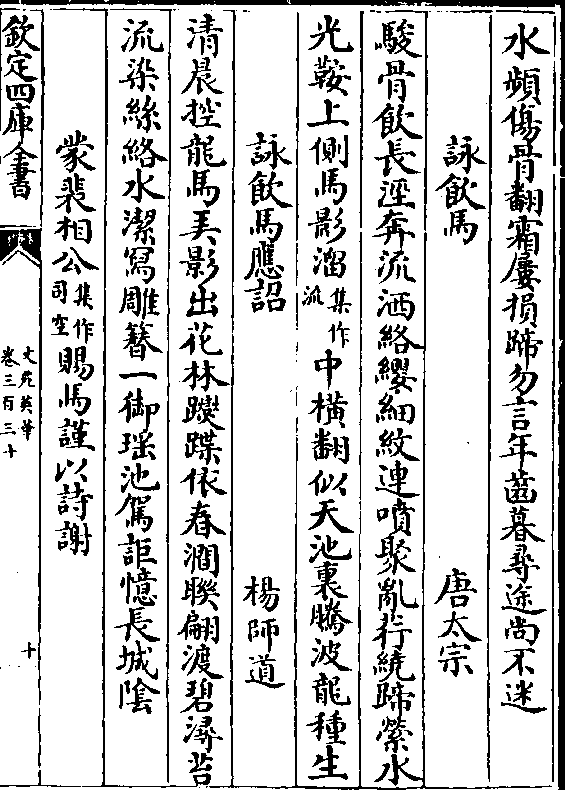 水頻傷骨翻霜屢損蹄勿言年齒暮尋途尚不迷
詠飲馬　唐太宗
駿骨飲長涇奔流洒絡纓細紋連噴聚亂荇繞蹄縈水
光鞍上側馬影溜集作流中橫翻似天池裏騰波龍種生
詠飲馬應詔　楊師道
清晨控龍馬弄影出花林躞蹀依春澗聯翩渡碧潯苔
流染絲絡水潔寫雕簪一御瑤池駕詎憶長城陰
蒙裴相公集作司空賜馬謹以詩謝
欽定四庫全書
文苑英華
卷三百三十
十